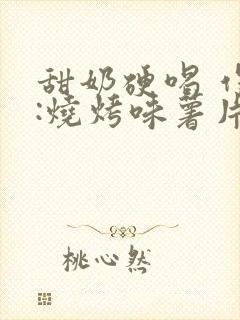 甜奶硬唱
:燒烤味薯片
桃心然